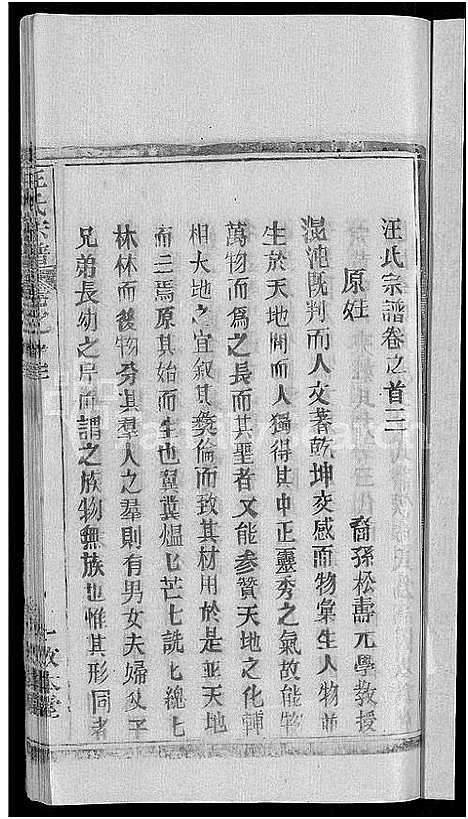 汪氏宗譜卷之首二
原姓　　　　　裔孫松壽元學教授
混沌既判而人文著乾坤交感而物彙生人物並
生於天地間而人獨得其中正靈秀之氣故能物
萬物而為之長而其聖者又能參贊天地之化輔
相天地之宜叙其彜倫而致其材用於是並天地
而三焉原其始而生也　熅七芒七詵七總七
林林而後物分其羣人之羣則有男女夫婦父子
兄弟長幼之序而謂之族物無族也惟其形同者
汪氏宗譜　卷之首二